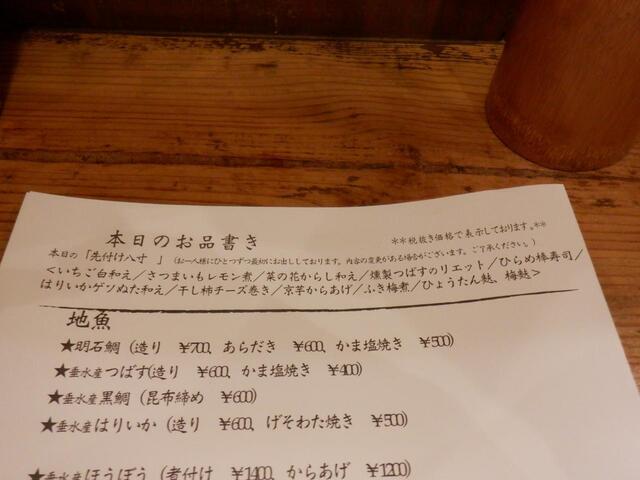 本日のお品書き
＊＊税抜き価格で表示しております。＊＊
本日の「先付け八寸　」（お一人様にひとつずつ最初にお出ししております。内容の変更がある場合がございます。ご了承ください。）
＜いちご白和え／さつまいもレモン煮／菜の花からし和え／燻製つばすのリエット／ひらめ棒寿司／
はりいかゲソぬた和え／干し柿チーズ巻き／京芋からあげ／ふき梅煮／ひょうたん麩、梅麩＞
地魚
★明石鯛（造り　￥700、あらだき　￥600、かま塩焼き　￥500）
★垂水産つばす(造り　￥600、かま塩焼き　￥400）
★垂水産黒鯛（昆布締め　￥600）
★垂水産はりいか（造り　￥600、げそわた焼き　￥500）
★垂水産ほうぼう（煮付け　￥1400、からあげ　￥1200）